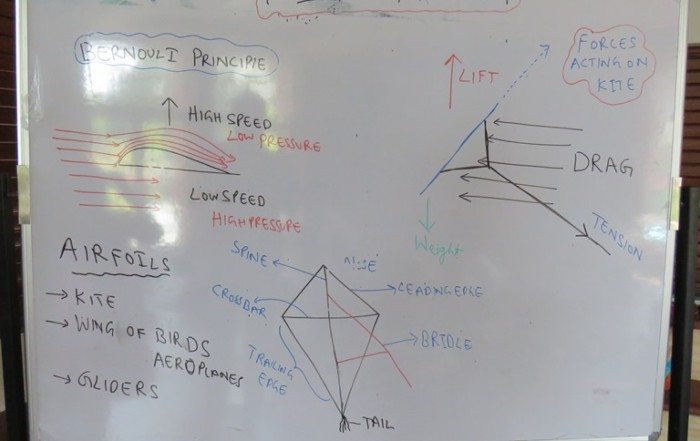 BERNOULI PRINCIPLE
HIGH SPEED
LOW PRESSURE
LOW SPEED
HIGH PRESSURE
FORCES
ACTING ON
KITE
LIFT
DRAG
TENSION
Weight
AIRFOILS
→ KITE
→ WING OF BIRDS
AEROPLANES
→ GLIDERS
SPINE
LEADING EDGE
CROSSBAR
BRIDLE
TRAILING
EDGE
TAIL